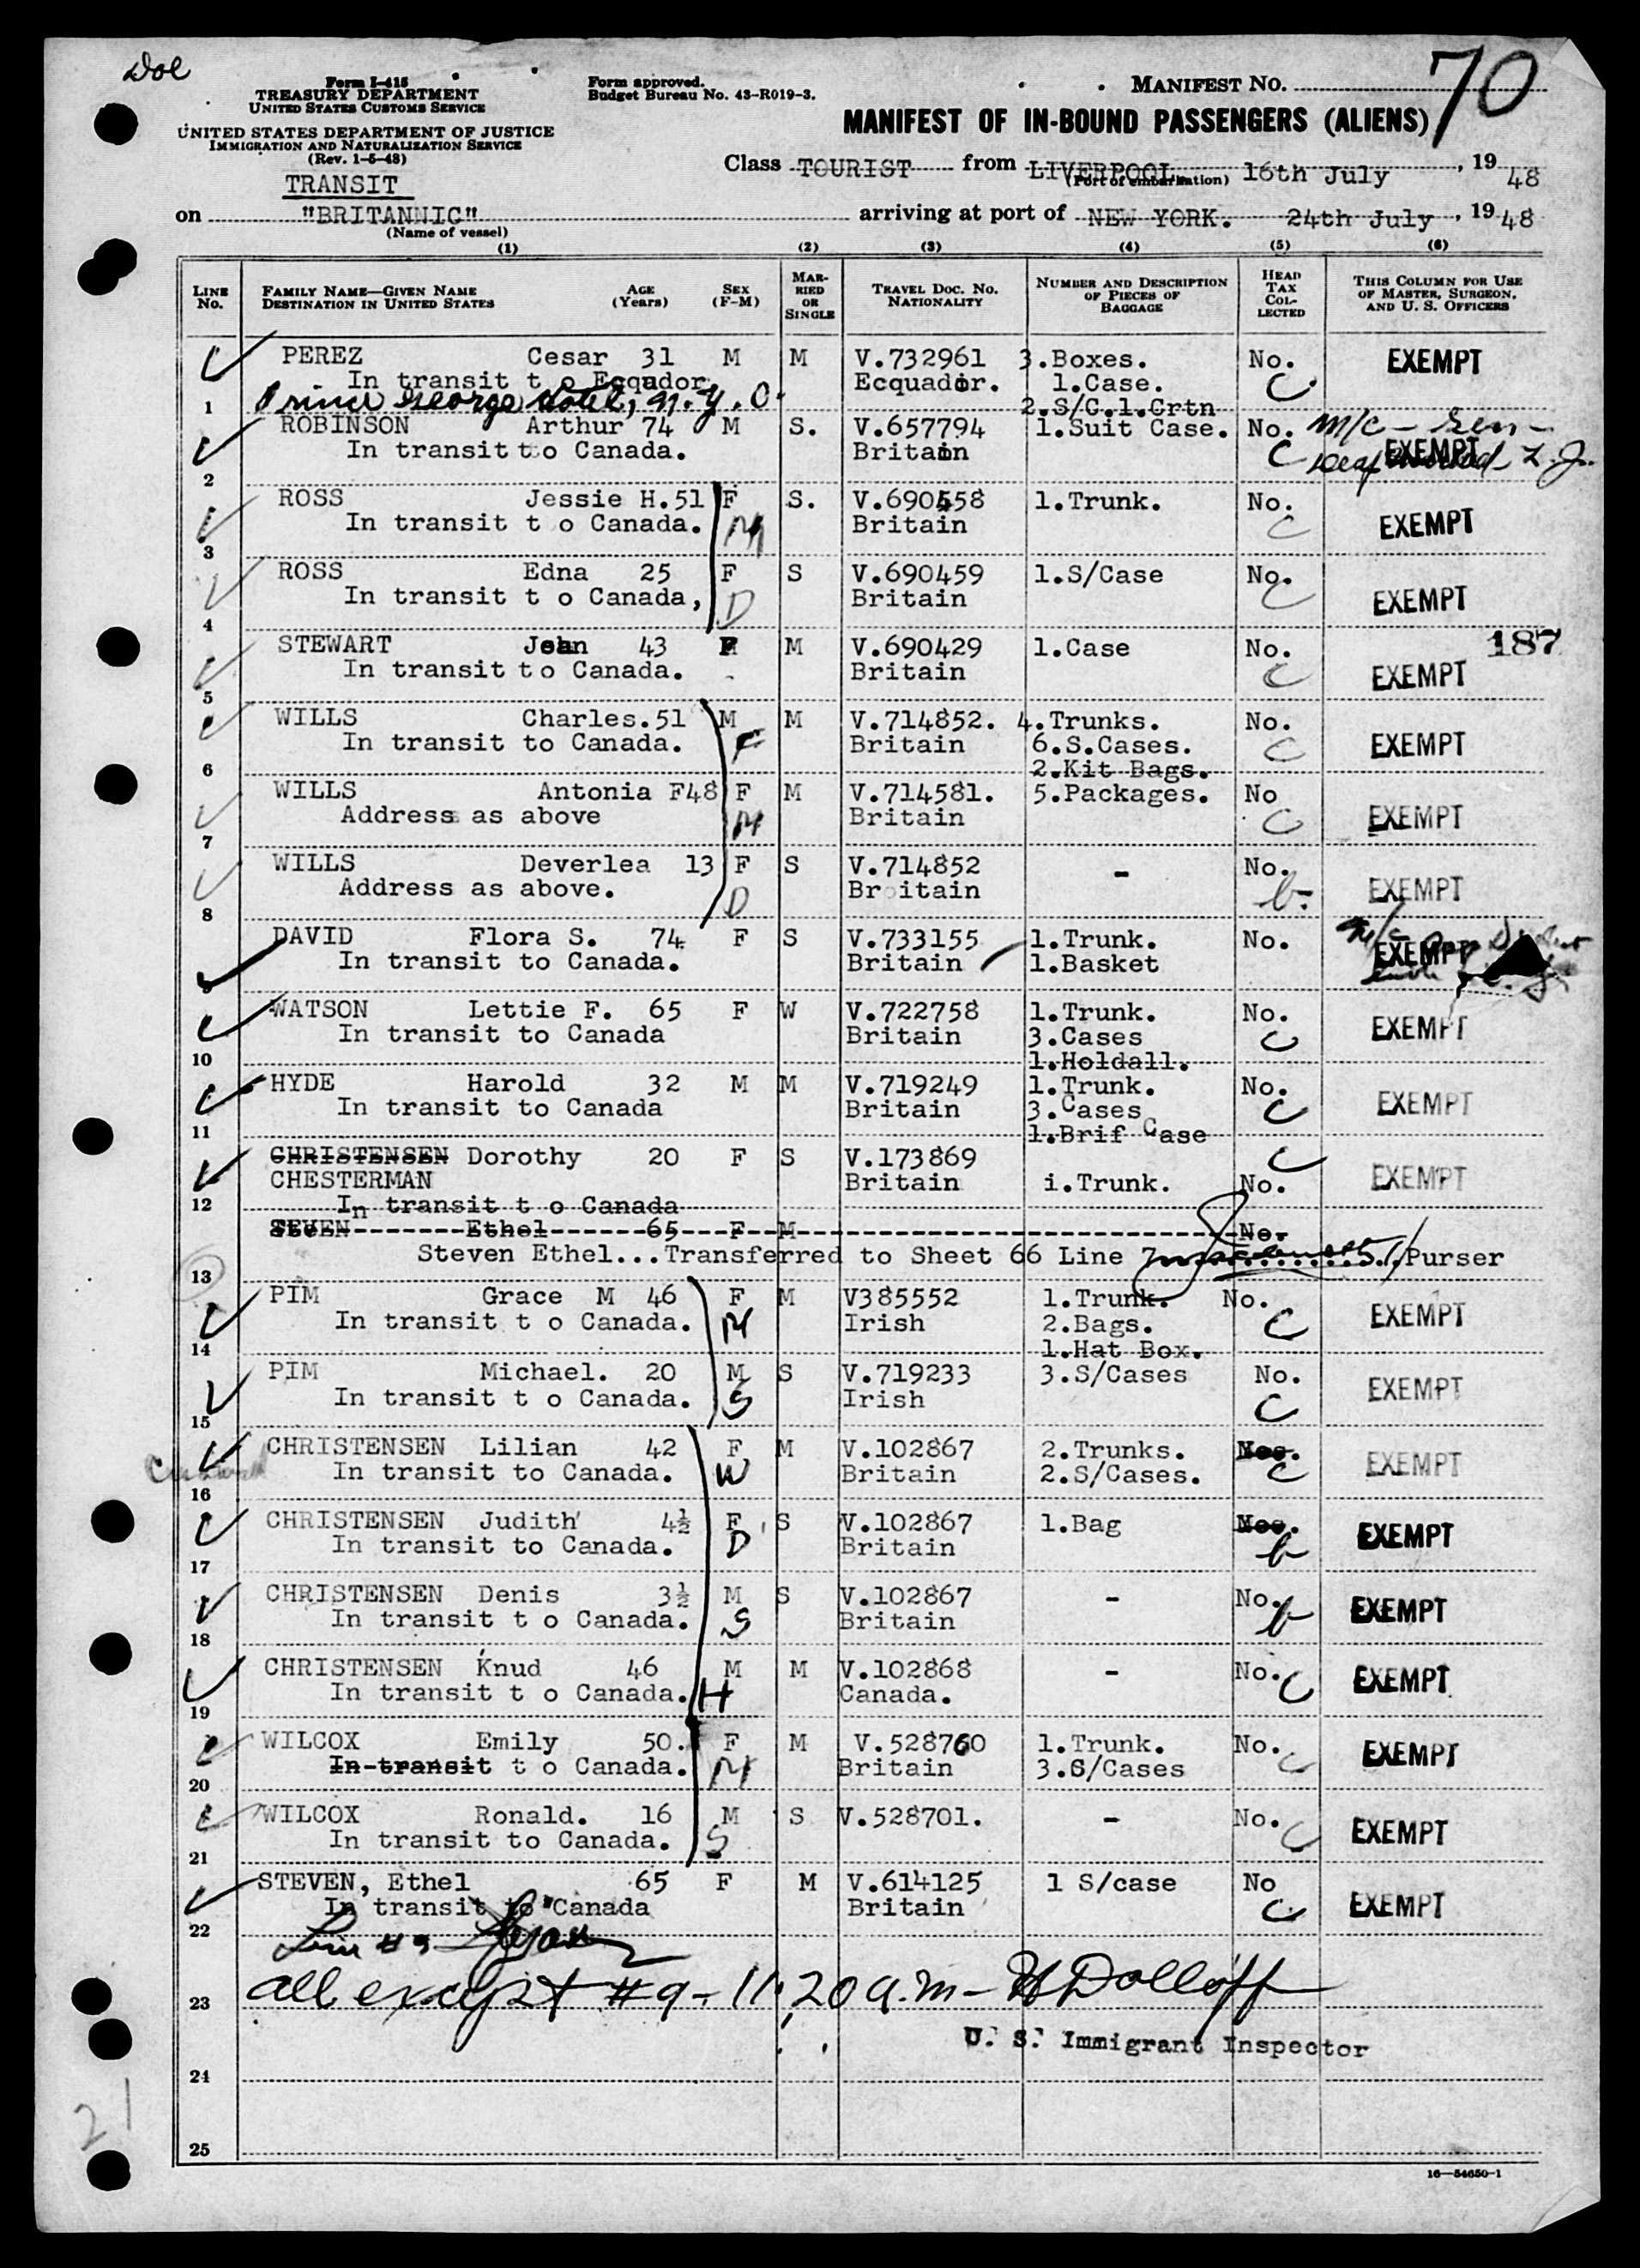 Doe
Form I-415
TREASURY DEPARTMENT
UNITED STATES CUSTOMS SERVICE
UNITED STATES DEPARTMENT OF JUSTICE
IMMIGRATION AND NATURALIZATION SERVICE
(Rev. 1-5-48)
Form approved.
Budget Bureau No. 43-R019-3.
MANIFEST NO. 70
MANIFEST OF IN-BOUND PASSENGERS (ALIENS)
Class TOURIST from LIVERPOOL 16th July, 1948
(Port of embarkation)
TRANSIT
on "BRITANNIC" arriving at port of NEW YORK. 24th July, 1948
(Name of vessel)
(1) (2) (3) (4) (5) (6)
LINE No. FAMILY NAME—GIVEN NAME DESTINATION IN UNITED STATES AGE (Years) SEX (F-M) MARRIED OR SINGLE TRAVEL DOC. NO. NATIONALITY NUMBER AND DESCRIPTION OF PIECES OF BAGGAGE HEAD TAX COLLECTED THIS COLUMN FOR USE OF MASTER, SURGEON, AND U. S. OFFICERS
PEREZ Cesar 31 M M V.732961 3.Boxes. No. EXEMPT
In transit t o Ecquador Ecquador. 1.Case. C
1 Prince George Hotel, N.Y.C. 2.S/C.1.Crtn
ROBINSON Arthur 74 M S. V.657794 1.Suit Case. No. m/c - sen -
In transit to Canada. Britain C EXEMPT
2
ROSS Jessie H.51 F S. V.690558 1.Trunk. No.
In transit t o Canada. M Britain C EXEMPT
3
ROSS Edna 25 F S V.690459 1.S/Case No.
In transit t o Canada, D Britain C EXEMPT
4
STEWART 43 M V.690429 1.Case No. 187
In transit to Canada. Britain C EXEMPT
5
WILLS Charles.51 M M V.714852. 4.Trunks. No.
In transit to Canada. F Britain 6.S.Cases. C EXEMPT
6 2.Kit Bags.
WILLS Antonia F48 F M V.714581. 5.Packages. No
Address as above M Britain C EXEMPT
7
WILLS Deverlea 13 F S V.714852 - No.
Address as above. D Britain b. EXEMPT
8
DAVID Flora S. 74 F S V.733155 1.Trunk. No. m/c
In transit to Canada. Britain 1.Basket EXEMPT
9
WATSON Lettie F. 65 F W V.722758 1.Trunk. No.
In transit to Canada Britain 3.Cases C EXEMPT
10 1.Holdall.
HYDE Harold 32 M M V.719249 1.Trunk. No.
In transit to Canada Britain 3.Cases C EXEMPT
11 1.Brif Case
CHRISTENSEN Dorothy 20 F S V.173869 C
CHESTERMAN Britain i.Trunk. No. EXEMPT
12 In transit t o Canada
STEVEN-------Ethel------65--F--M No.
Steven Ethel...Transferred to Sheet 66 Line 7 Purser
13
PIM Grace M 46 F M V385552 1.Trunk. No.
In transit t o Canada. M Irish 2.Bags. C EXEMPT
14 1.Hat Box.
PIM Michael. 20 M S V.719233 3.S/Cases No.
In transit t o Canada. S Irish C EXEMPT
15
CHRISTENSEN Lilian 42 F M V.102867 2.Trunks.
In transit to Canada. W Britain 2.S/Cases. C EXEMPT
16
CHRISTENSEN Judith 4½ F S V.102867 1.Bag
In transit to Canada. D Britain b EXEMPT
17
CHRISTENSEN Denis 3½ M S V.102867 - No.
In transit t o Canada. S Britain b EXEMPT
18
CHRISTENSEN Knud 46 M M V.102868 - No.
In transit t o Canada. H Canada. C EXEMPT
19
WILCOX Emily 50. F M V.528760 1.Trunk. No.
In-transit t o Canada. M Britain 3.S/Cases C EXEMPT
20
WILCOX Ronald. 16 M S V.528701. - No.
In transit to Canada. S C EXEMPT
21
STEVEN, Ethel 65 F M V.614125 1 S/case No
In transit to Canada Britain C EXEMPT
22
Line #9
23 all except #9 - 11,20 a.m - Dolloff
U. S. Immigrant Inspector
24
21
25
16—54650-1